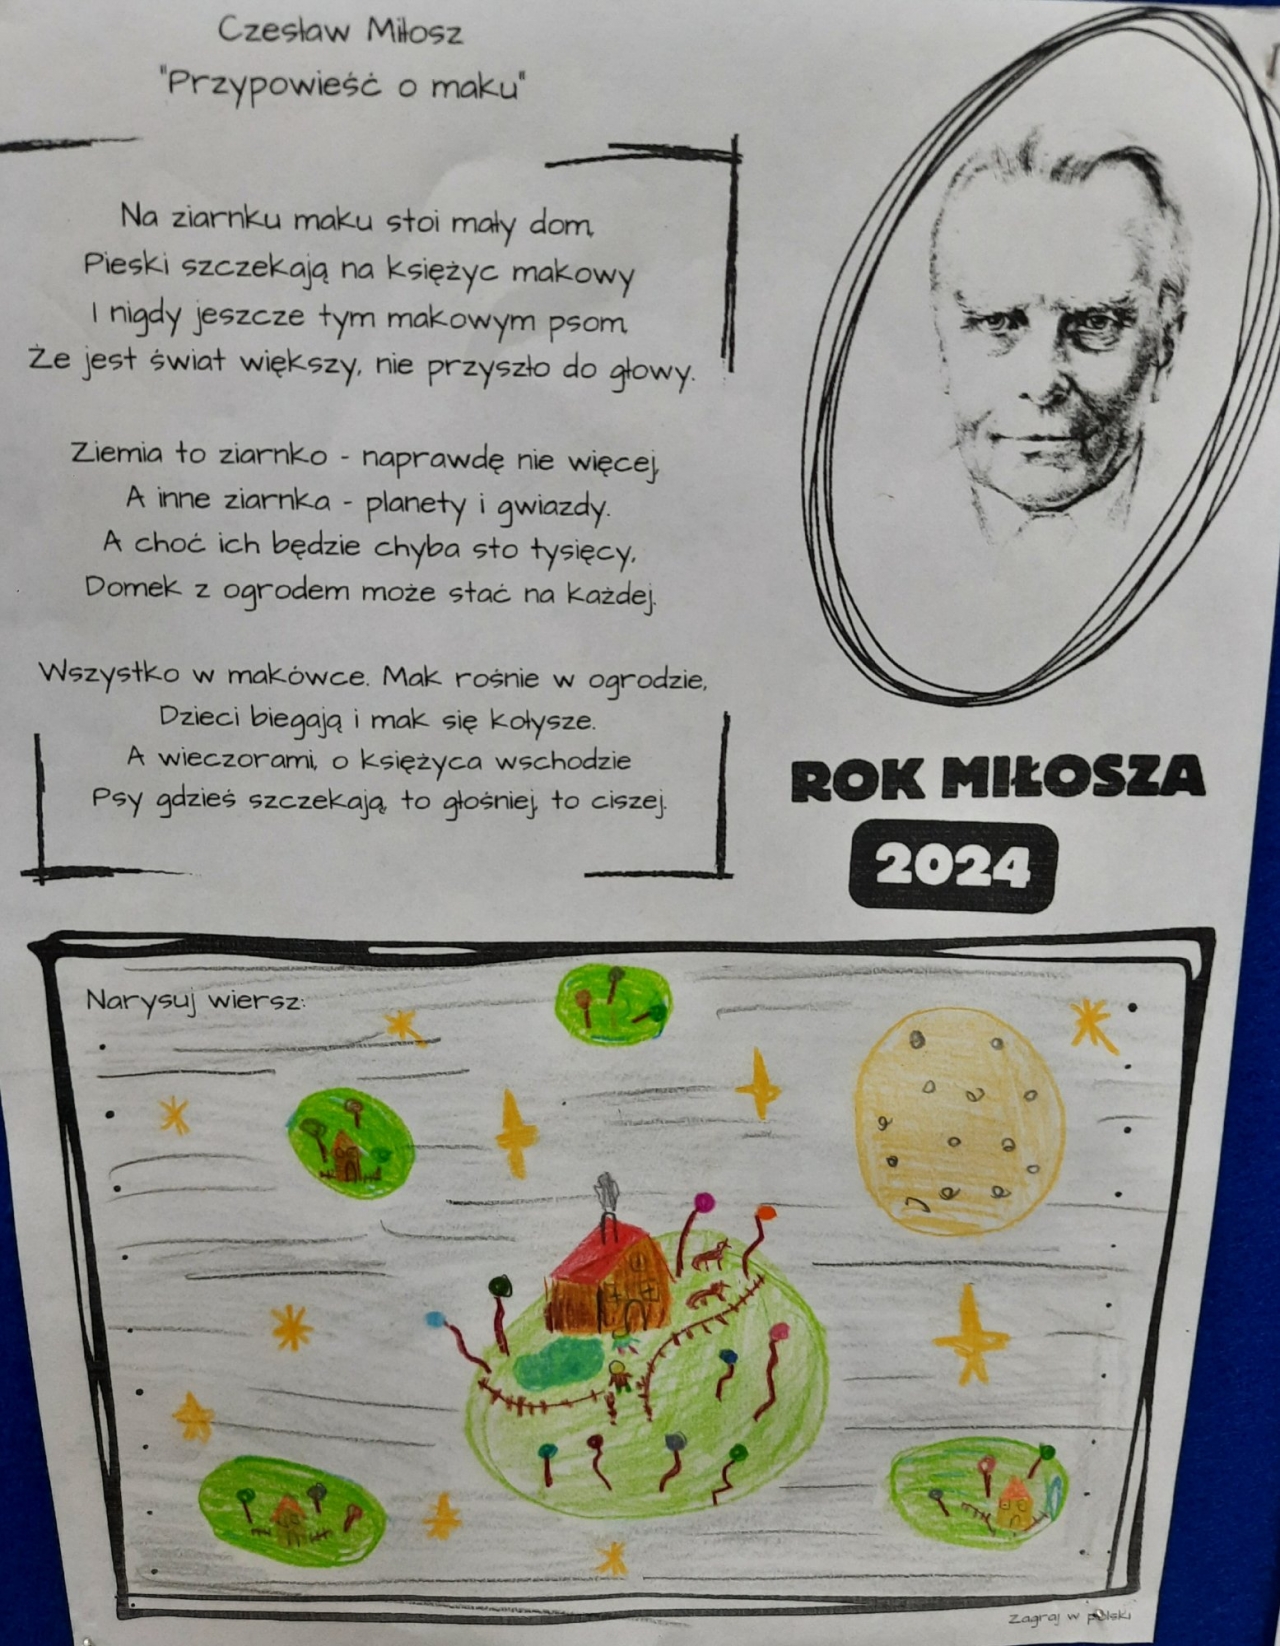 Czesław Miłosz
"Przypowieść o maku"
Na ziarnku maku stoi mały dom,
Pieski szczekają na księżyc makowy
I nigdy jeszcze tym makowym psom,
Że jest świat większy, nie przyszło do głowy.
Ziemia to ziarnko - naprawdę nie więcej,
A inne ziarnka - planety i gwiazdy.
A choć ich będzie chyba sto tysięcy,
Domek z ogrodem może stać na każdej.
Wszystko w makówce. Mak rośnie w ogrodzie,
Dzieci biegają i mak się kołysze.
A wieczorami, o księżyca wschodzie
Psy gdzieś szczekają, to głośniej, to ciszej.
ROK MIŁOSZA
2024
Narysuj wiersz:
Zagraj w polski